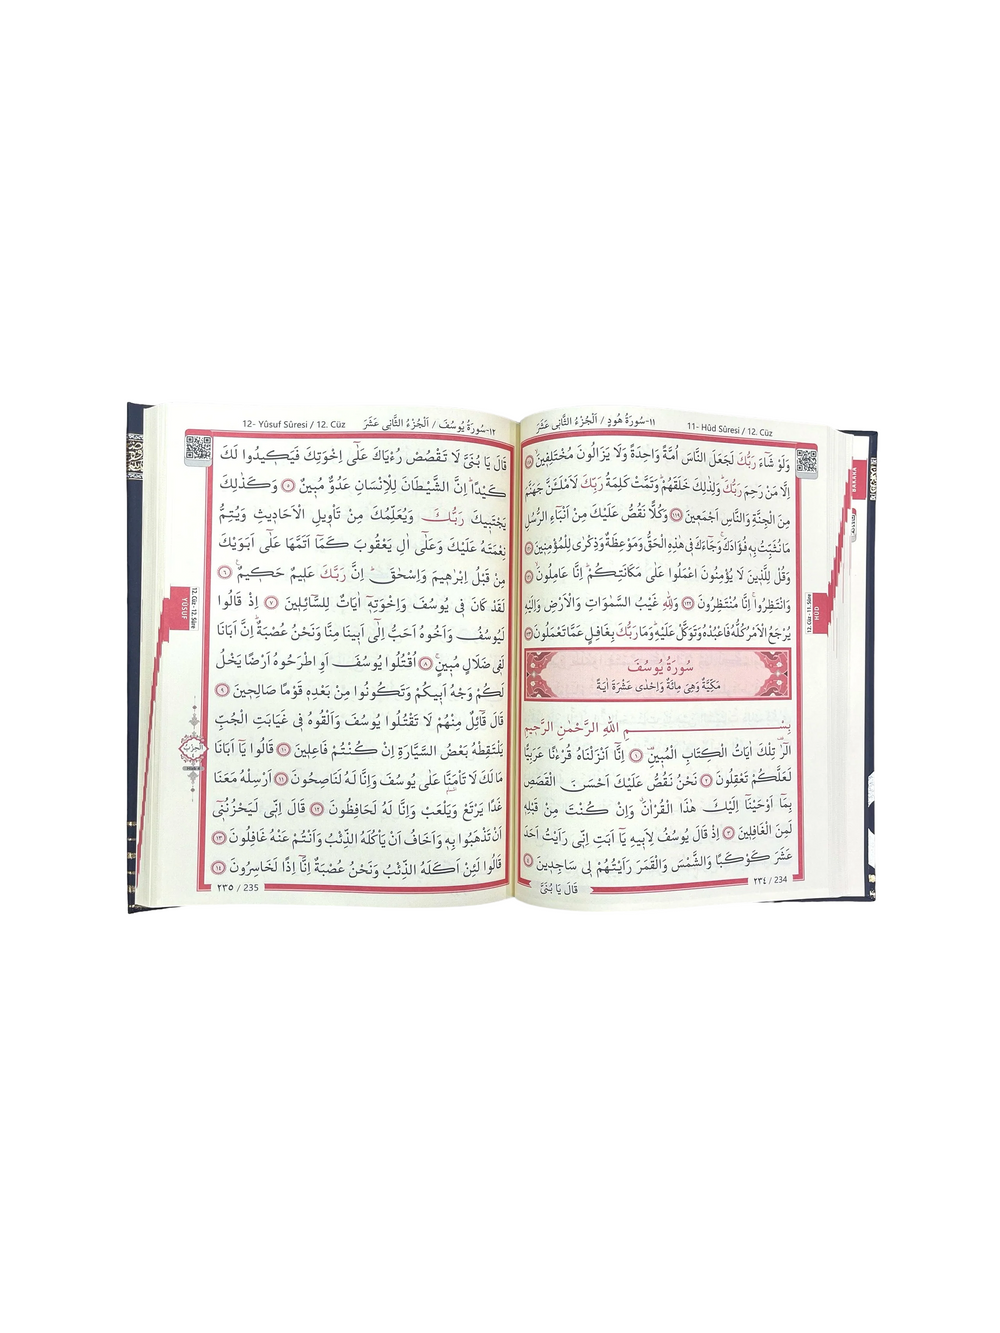 11- Hûd Sûresi / 12. Cüz
١١-سُورَةُ هُودٍ / اَلْجُزْءُ الثَّانِى عَشَرَ
وَلَوْ شَٓاءَ رَبُّكَ لَجَعَلَ النَّاسَ اُمَّةً وَاحِدَةً وَلَا يَزَالُونَ مُخْتَلِفِينَۙ ﴿١١٨﴾
اِلَّا مَنْ رَحِمَ رَبُّكَۜ وَلِذٰلِكَ خَلَقَهُمْۜ وَتَمَّتْ كَلِمَةُ رَبِّكَ لَاَمْلَـَٔنَّ جَهَنَّمَ
مِنَ الْجِنَّةِ وَالنَّاسِ اَجْمَعِينَ ﴿١١٩﴾ وَكُلًّا نَقُصُّ عَلَيْكَ مِنْ اَنْبَٓاءِ الرُّسُلِ
مَا نُثَبِّتُ بِهِ فُؤٰادَكَۚ وَجَٓاءَكَ فِى هٰذِهِ الْحَقُّ وَمَوْعِظَةٌ وَذِكْرٰى لِلْمُؤْمِنِينَ ﴿١٢٠﴾
وَقُلْ لِلَّذِينَ لَا يُؤْمِنُونَ اعْمَلُوا عَلٰى مَكَانَتِكُمْۜ اِنَّا عَامِلُونَۙ ﴿١٢١﴾
وَانْتَظِرُواۚ اِنَّا مُنْتَظِرُونَ ﴿١٢٢﴾ وَلِلّٰهِ غَيْبُ السَّمٰوَاتِ وَالْاَرْضِ وَاِلَيْهِ
يُرْجَعُ الْاَمْرُ كُلُّهُ فَاعْبُدْهُ وَتَوَكَّلْ عَلَيْهِۜ وَمَا رَبُّكَ بِغَافِلٍ عَمَّا تَعْمَلُونَ ﴿١٢٣﴾
سُورَةُ يُوسُفَ
مَكِّيَّةٌ وَهِىَ مِائَةٌ وَاِحْدٰى عَشْرَةَ اٰيَةً
بِسْمِ اللّٰهِ الرَّحْمٰنِ الرَّحِيمِ
الٓرٰ۠ تِلْكَ اٰيَاتُ الْكِتَابِ الْمُبِينِ۠ ﴿١﴾ اِنَّٓا اَنْزَلْنَاهُ قُرْءٰنًا عَرَبِيًّا
لَعَلَّكُمْ تَعْقِلُونَ ﴿٢﴾ نَحْنُ نَقُصُّ عَلَيْكَ اَحْسَنَ الْقَصَصِ
بِمَٓا اَوْحَيْنَٓا اِلَيْكَ هٰذَا الْقُرْاٰنَۗ وَاِنْ كُنْتَ مِنْ قَبْلِهِ
لَمِنَ الْغَافِلِينَ ﴿٣﴾ اِذْ قَالَ يُوسُفُ لِاَبِيهِ يَٓا اَبَتِ اِنِّى رَاَيْتُ اَحَدَ
عَشَرَ كَوْكَبًا وَالشَّمْسَ وَالْقَمَرَ رَاَيْتُهُمْ لِى سَاجِدِينَ ﴿٤﴾
٢٣٤ / 234
قَالَ يَا بُنَىَّ
BAKARA
HÛD
12. Cüz - 11. Sûre
12- Yûsuf Sûresi / 12. Cüz
١٢-سُورَةُ يُوسُفَ / اَلْجُزْءُ الثَّانِى عَشَرَ
قَالَ يَا بُنَىَّ لَا تَقْصُصْ رُءْيَاكَ عَلٰٓى اِخْوَتِكَ فَيَكِيدُوا لَكَ
كَيْدًاۜ اِنَّ الشَّيْطَانَ لِلْاِنْسَانِ عَدُوٌّ مُبِينٌ ﴿٥﴾ وَكَذٰلِكَ
يَجْتَبِيكَ رَبُّكَ وَيُعَلِّمُكَ مِنْ تَأْوِيلِ الْاَحَادِيثِ وَيُتِمُّ
نِعْمَتَهُ عَلَيْكَ وَعَلٰٓى اٰلِ يَعْقُوبَ كَمَٓا اَتَمَّهَا عَلٰٓى اَبَوَيْكَ
مِنْ قَبْلُ اِبْرٰهِيمَ وَاِسْحٰقَۜ اِنَّ رَبَّكَ عَلِيمٌ حَكِيمٌ۟ ﴿٦﴾
لَقَدْ كَانَ فِى يُوسُفَ وَاِخْوَتِهِٓ اٰيَاتٌ لِلسَّٓائِلِينَ ﴿٧﴾ اِذْ قَالُوا
لَيُوسُفُ وَاَخُوهُ اَحَبُّ اِلٰٓى اَبِينَا مِنَّا وَنَحْنُ عُصْبَةٌۜ اِنَّ اَبَانَا
لَفِى ضَلَالٍ مُبِينٍۚ ﴿٨﴾ اُقْتُلُوا يُوسُفَ اَوِ اطْرَحُوهُ اَرْضًا يَخْلُ
لَكُمْ وَجْهُ اَبِيكُمْ وَتَكُونُوا مِنْ بَعْدِهِ قَوْمًا صَالِحِينَ ﴿٩﴾
قَالَ قَٓائِلٌ مِنْهُمْ لَا تَقْتُلُوا يُوسُفَ وَاَلْقُوهُ فِى غَيَابَتِ الْجُبِّ
يَلْتَقِطْهُ بَعْضُ السَّيَّارَةِ اِنْ كُنْتُمْ فَاعِلِينَ ﴿١٠﴾ قَالُوا يَٓا اَبَانَا
مَا لَكَ لَا تَأْمَنَّا عَلٰى يُوسُفَ وَاِنَّا لَهُ لَنَاصِحُونَ ﴿١١﴾ اَرْسِلْهُ مَعَنَا
غَدًا يَرْتَعْ وَيَلْعَبْ وَاِنَّا لَهُ لَحَافِظُونَ ﴿١٢﴾ قَالَ اِنِّى لَيَحْزُنُنِٓى
اَنْ تَذْهَبُوا بِهِ وَاَخَافُ اَنْ يَأْكُلَهُ الذِّئْبُ وَاَنْتُمْ عَنْهُ غَافِلُونَ ﴿١٣﴾
قَالُوا لَئِنْ اَكَلَهُ الذِّئْبُ وَنَحْنُ عُصْبَةٌ اِنَّٓا اِذًا لَخَاسِرُونَ ﴿١٤﴾
٢٣٥ / 235
12. Cüz - 12. Sûre
YÛSUF
اَلْحِزْبُ